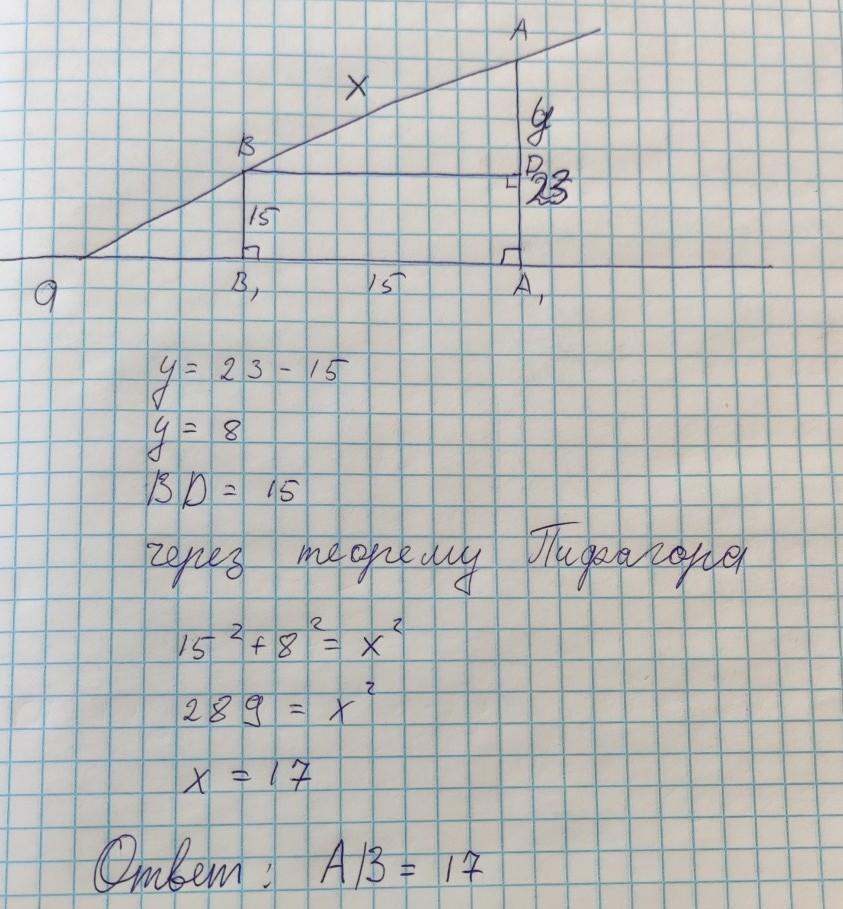 A
x
y
B
D
23
15
a
B₁
15
A₁
y = 23 - 15
y = 8
BD = 15
через теорему Пифагора
15² + 8² = x²
289 = x²
x = 17
Ответ: AB = 17